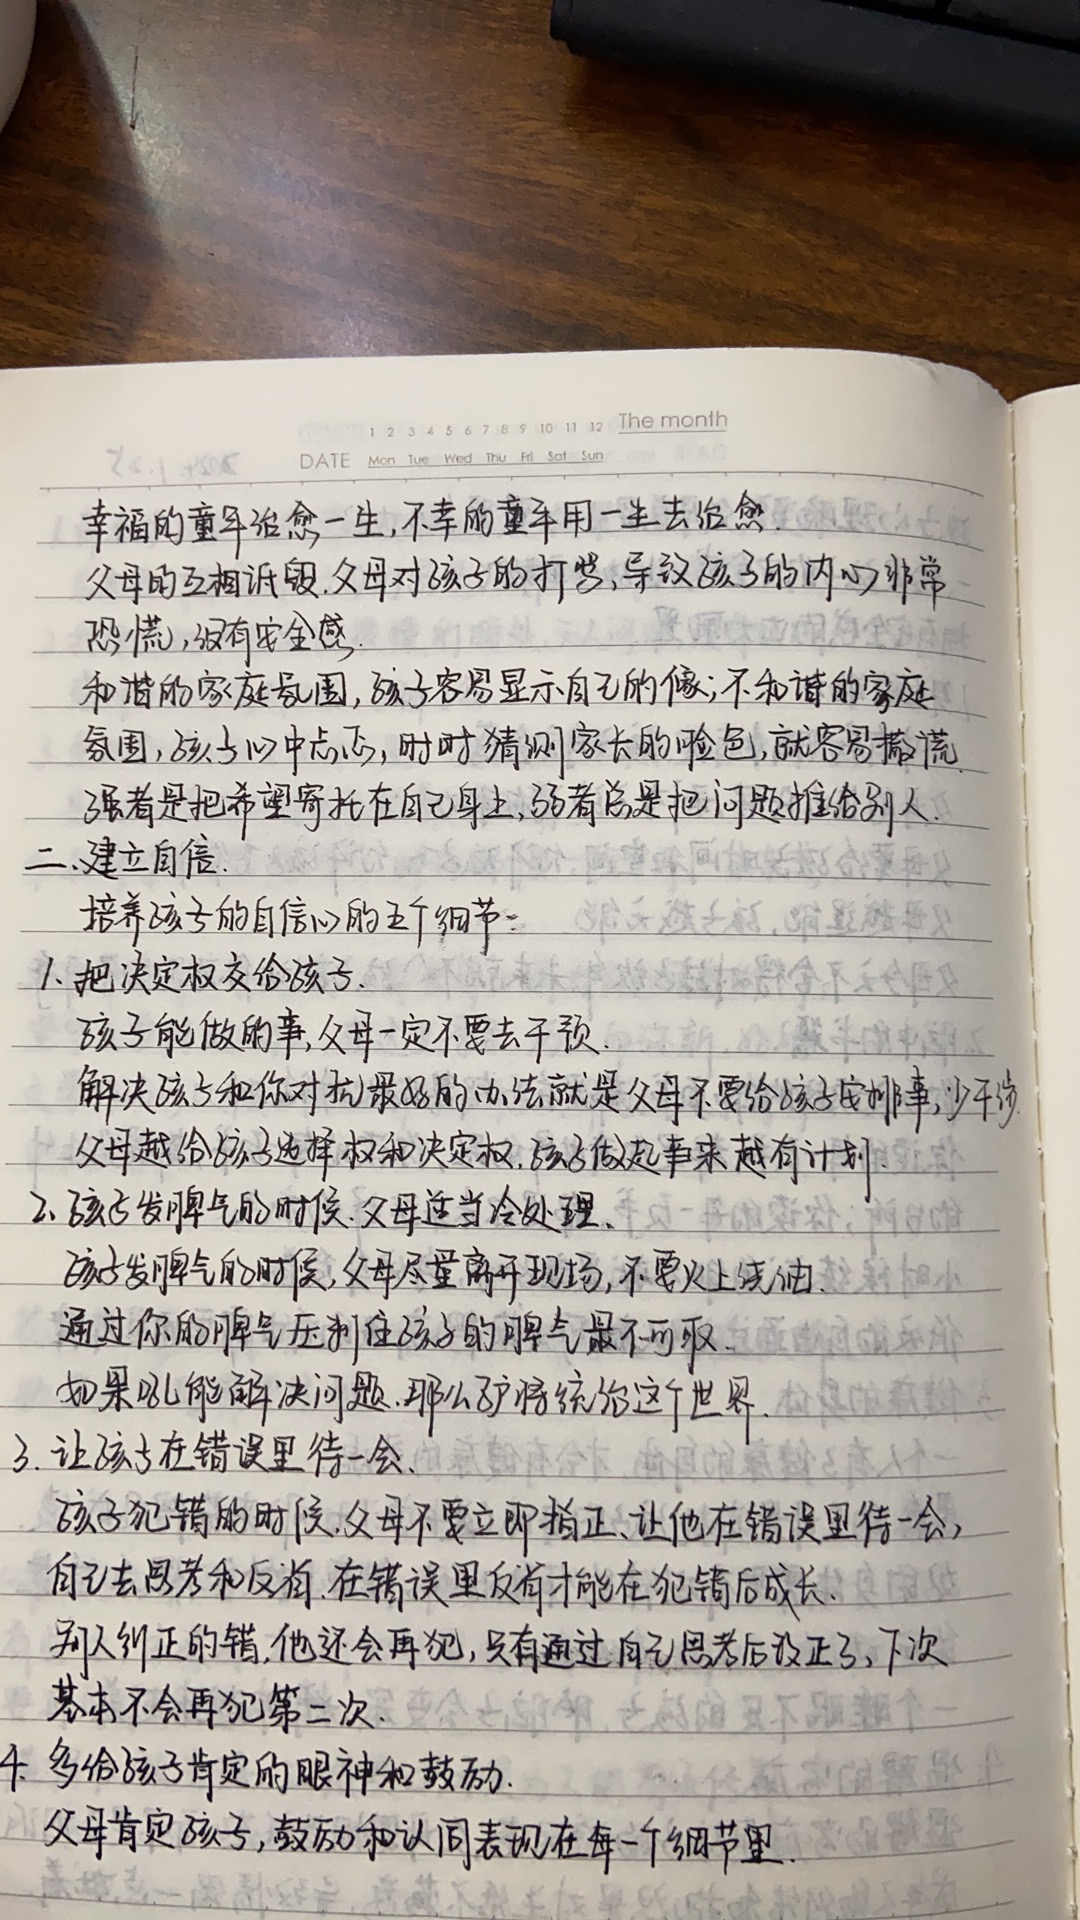 1 2 3 4 5 6 7 8 9 10 11 12 The month
DATE Mon Tue Wed Thu Fri Sat Sun
幸福的童年治愈一生,不幸的童年用一生去治愈.
父母的互相诋毁.父母对孩子的打骂,导致孩子的内心非常
恐慌,没有安全感.
和谐的家庭氛围,孩子容易显示自己的傻;不和谐的家庭
氛围,孩子心中忐忑,时时猜测家长的脸色,就容易撒谎.
强者是把希望寄托在自己身上,弱者总是把问题推给别人.
二、建立自信.
培养孩子的自信心的五个细节:
1.把决定权交给孩子.
孩子能做的事,父母一定不要去干预.
解决孩子和你对抗最好的办法就是父母不要给孩子安排事,少干涉
父母越给孩子选择权和决定权.孩子做起事来越有计划.
2、孩子发脾气的时候.父母适当冷处理.
孩子发脾气的时候,父母尽量离开现场,不要火上浇油.
通过你的脾气压制住孩子的脾气最不可取.
如果吼能解决问题.那么驴将统治这个世界.
3.让孩子在错误里待一会.
孩子犯错的时候.父母不要立即指正、让他在错误里待一会,
自己去思考和反省.在错误里反省才能在犯错后成长.
别人纠正的错.他还会再犯,只有通过自己思考后改正了、下次
基本不会再犯第二次.
4.多给孩子肯定的眼神和鼓励.
父母肯定孩子,鼓励和认同表现在每一个细节里.